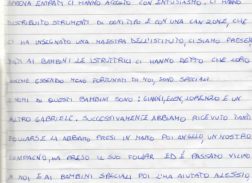 APPENA ENTRATI CI HANNO ACCOLTO CON ENTUSIASMO. CI HANNO
DISTRIBUITO STRUMENTI DI CON UNA CANZONE, CHE
CI HA INSEGNATO UNA MAESTRA DELL'ISTITUTO, CI SIAMO PRESEN
TATI AI BAMBINI. LE ISTRUTTRICI CI HANNO DETTO CHE LORO,
ANCHE ESSENDO MENO FORTUNATI DI NOI, SONO SPECIALI.
I NOMI DI QUESTI BAMBINI SONO: GIANNI, LEON, LORENZO E UN
ALTRO GABRIELE. SUCCESSIVAMENTE ABBIAMO RICEVUTO DANI
FOULARS E LA ABBIAMO PRESI IN MANO POI ANGELO, UN NOSTRO
COMPAGNO, HA PRESO IL SUO FOULAR ED È PASSATO VICINO
A NOI E AI BAMBINI SPECIALI POI L'HA AIUTATO ALESSIA